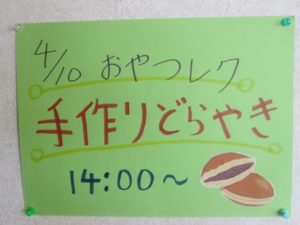 4/10 おやつレク
手作りどらやき
14:00～